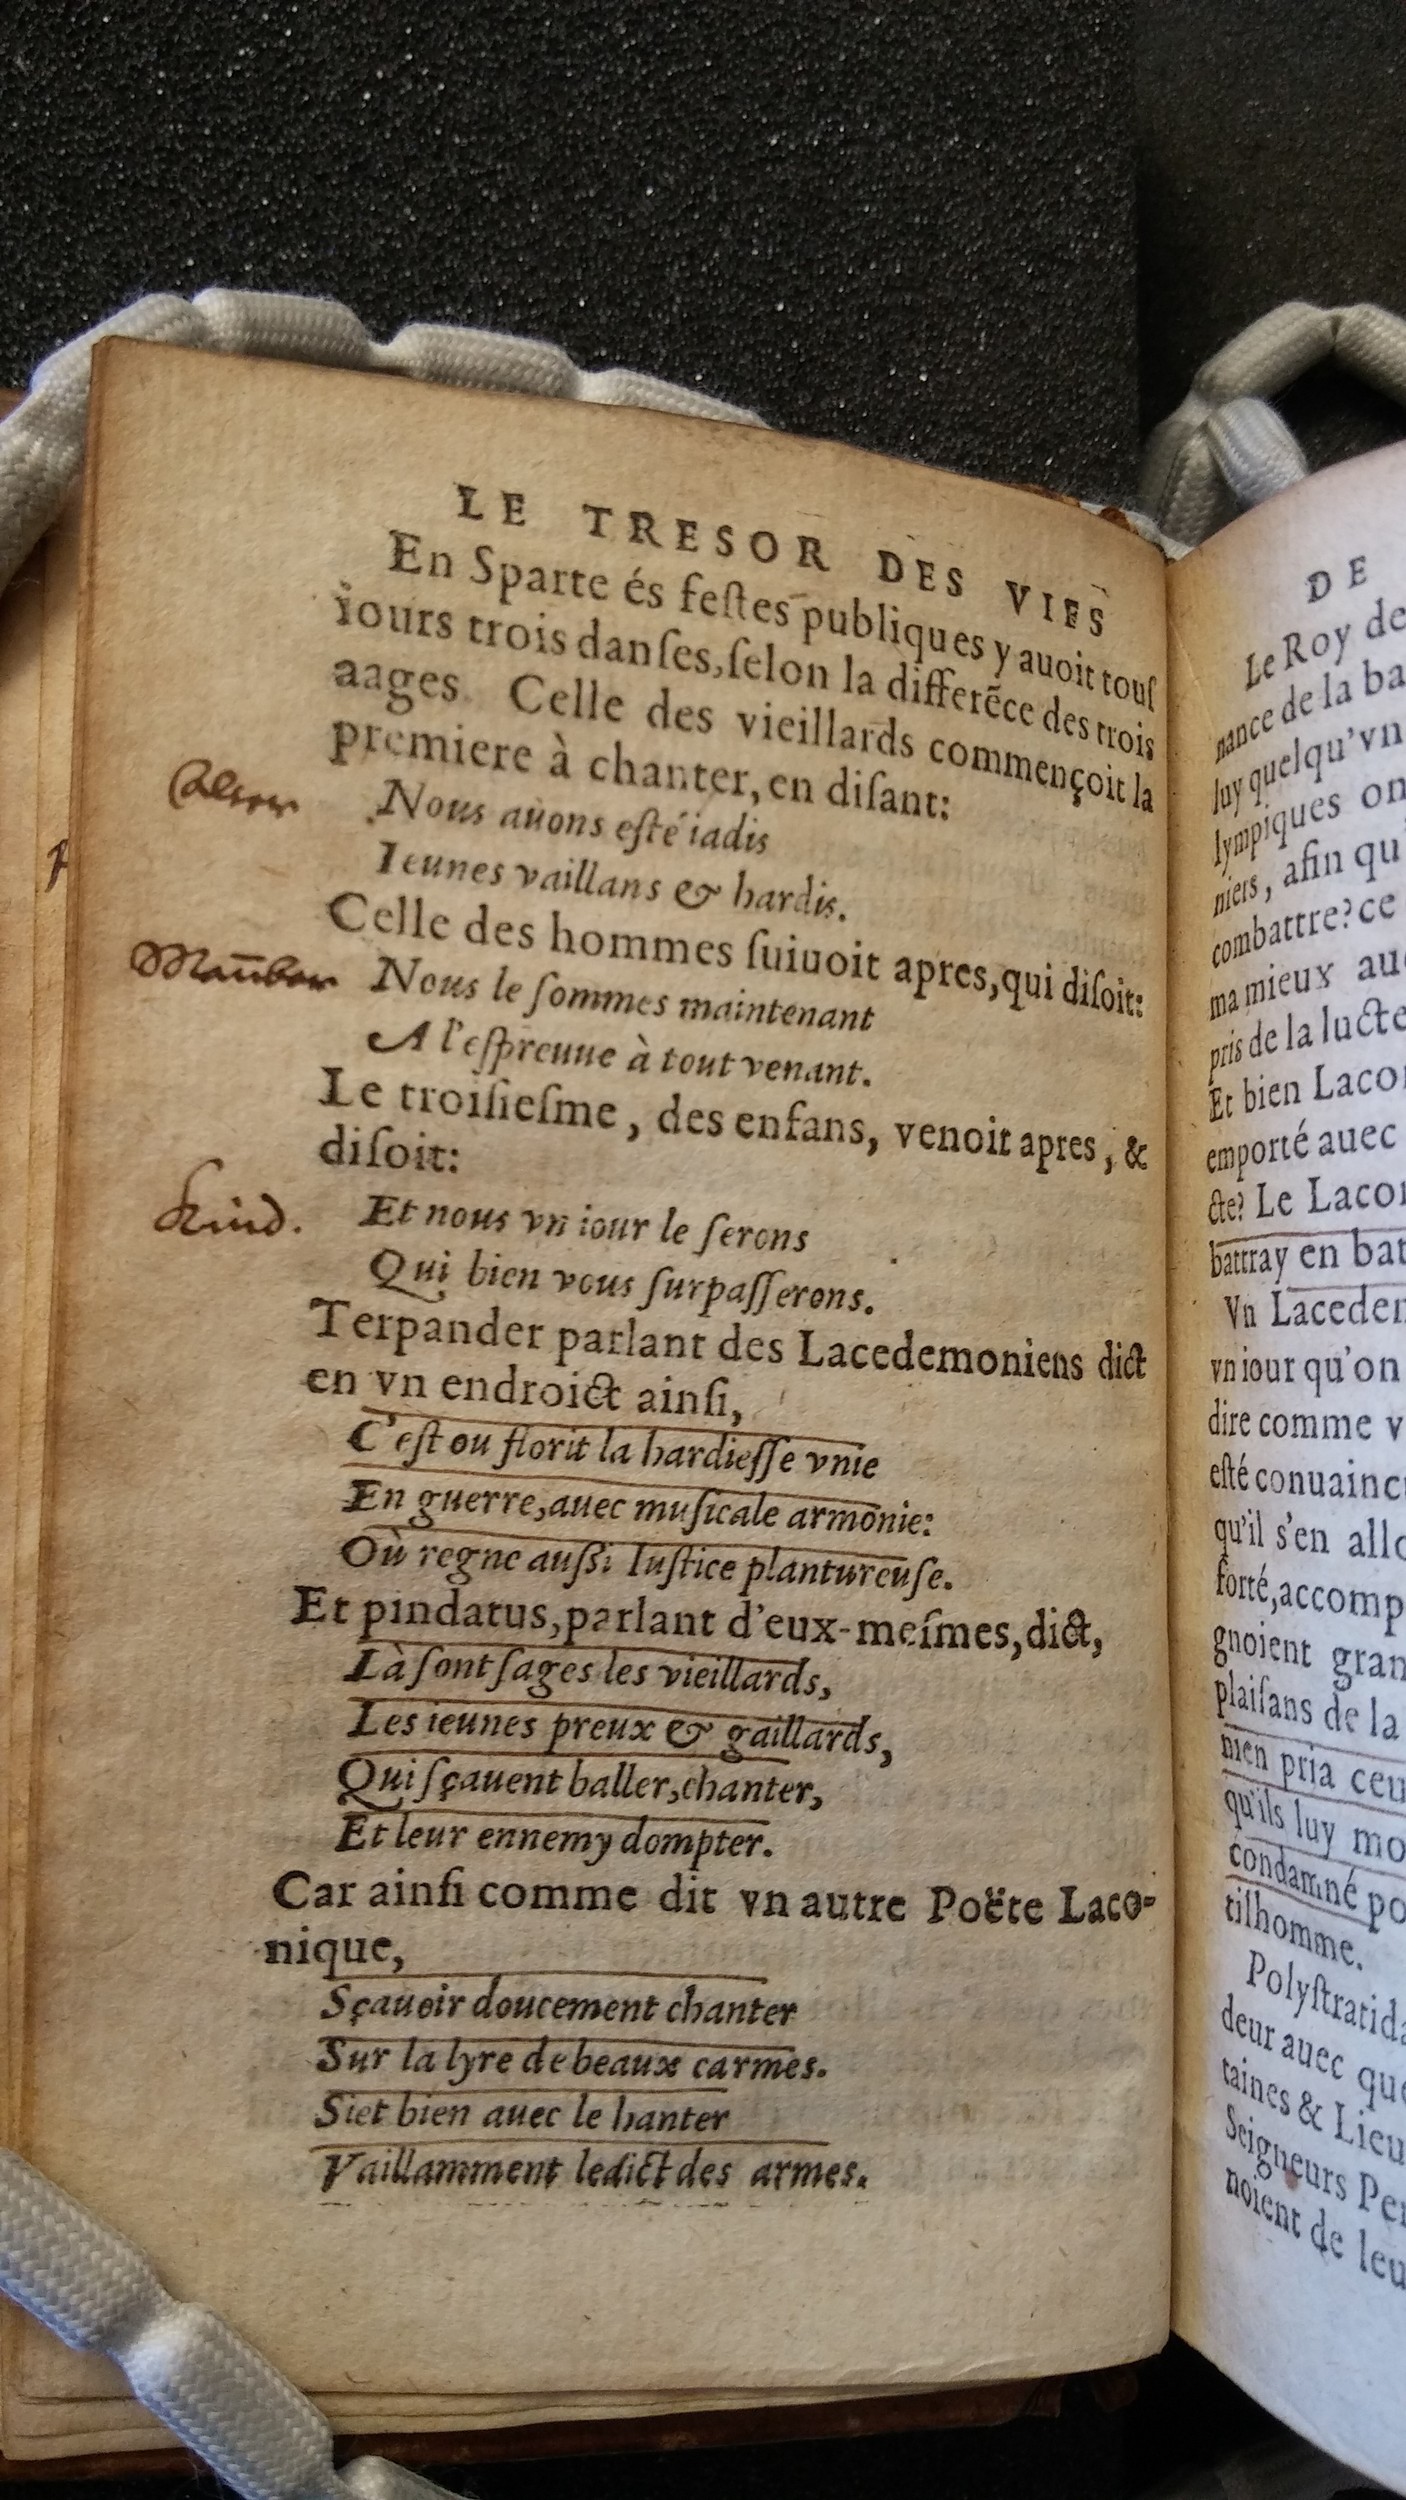 LE TRESOR DES VIES
En Sparte és feſtes publiques y auoit touſ
iours trois danſes, ſelon la differẽce des trois
aages. Celle des vieillards commençoit la
premiere à chanter, en diſant:
Nous auons eſté iadis
Ieunes vaillans & hardis.
Celle des hommes ſuiuoit apres, qui diſoit:
Nous le ſommes maintenant
A l'eſpreuue à tout venant.
Le troiſieſme, des enfans, venoit apres, &
diſoit:
Kind.
Et nous vn iour le ſerons
Qui bien vous ſurpaſſerons.
Terpander parlant des Lacedemoniens dict
en vn endroict ainſi,
C'eſt ou florit la hardieſſe vnie
En guerre, auec muſicale armonie:
Où regne auſſi Iuſtice plantureuſe.
Et pindatus, parlant d'eux-meſmes, dict,
Là ſont ſages les vieillards,
Les ieunes preux & gaillards,
Qui ſçauent baller, chanter,
Et leur ennemy dompter.
Car ainſi comme dit vn autre Poëte Laco-
nique,
Sçauoir doucement chanter
Sur la lyre de beaux carmes.
Siet bien auec le hanter
Vaillamment ledict des armes.
DE
Le Roy de
nance de la ba
luy quelqu'vn
lympiques on
niers, afin qu'
combattre? ce
ma mieux au
pris de la lucte
Et bien Laco
emporté auec
cte? Le Laco
battray en bat
Vn Laceder
vn iour qu'on
dire comme v
eſté conuainc
qu'il s'en allo
forté, accomp
gnoient gran
plaiſans de la
nien pria ceu
qu'ils luy mo
condamné po
tilhomme.
Polyſtratida
deur auec que
taines & Lieu
Seigneurs Per
noient de leu